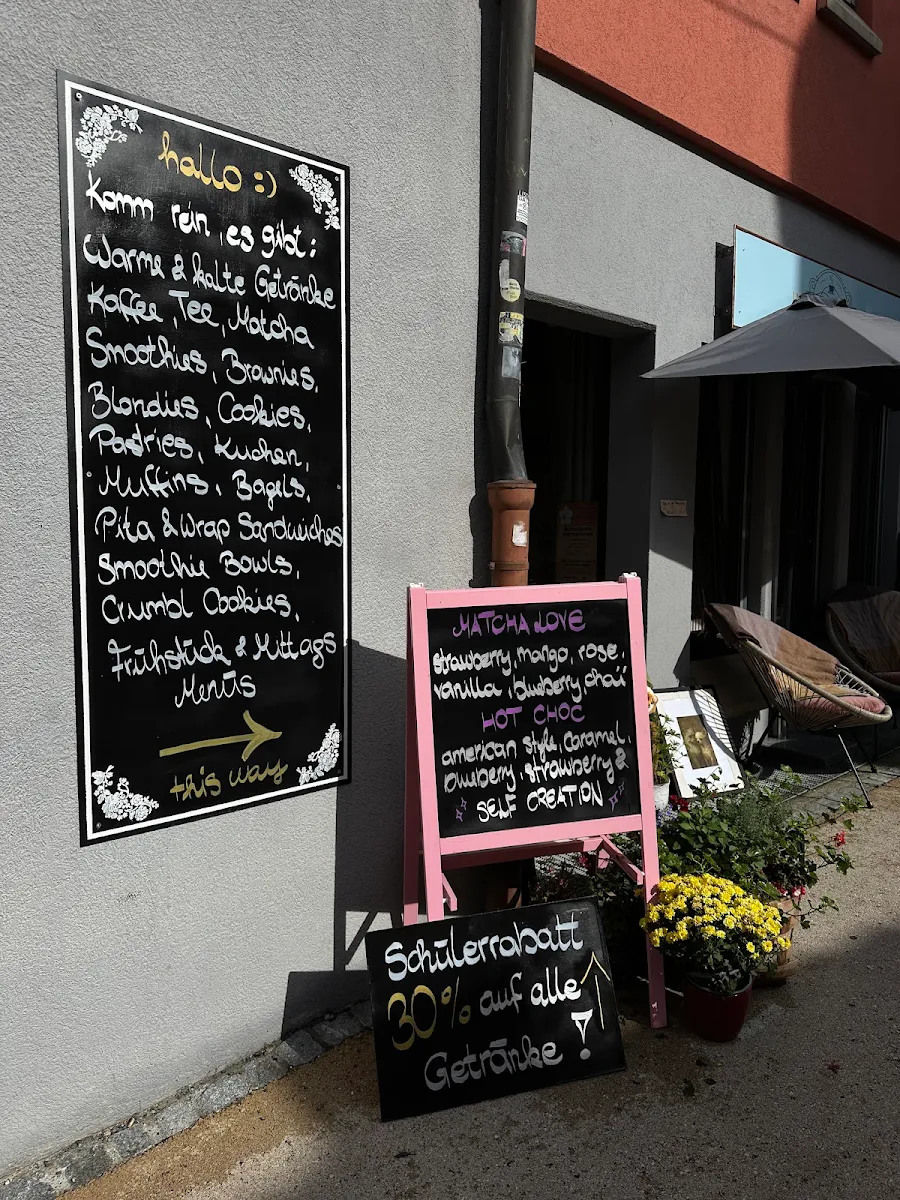 hallo :)
Komm rein, es gibt:
Warme & kalte Getränke
Kaffee, Tee, Matcha
Smoothies, Brownies,
Blondies, Cookies,
Pastries, Kuchen,
Muffins, Bagels,
Pita & Wrap Sandwiches
Smoothie Bowls,
Crumbl Cookies,
Frühstück & Mittags
Menüs
this way
MATCHA LOVE
strawberry, mango, rose,
vanilla, blueberry, chaï
HOT CHOC
american style, caramel,
blueberry, strawberry &
SELF CREATION
Schülerrabatt
30% auf alle
Getränke !